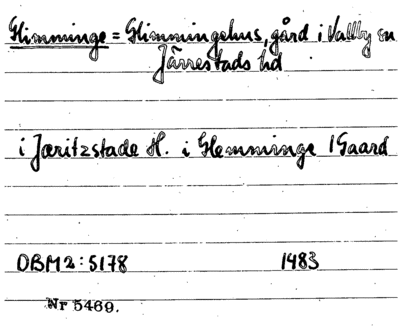 Glimminge = Glimmingehus, gård i Vallby sn
Järrestads hd
i Jæritzstade H. i Glemminge 1 Gaard
DBM2:5178 1483
Nr 5469.